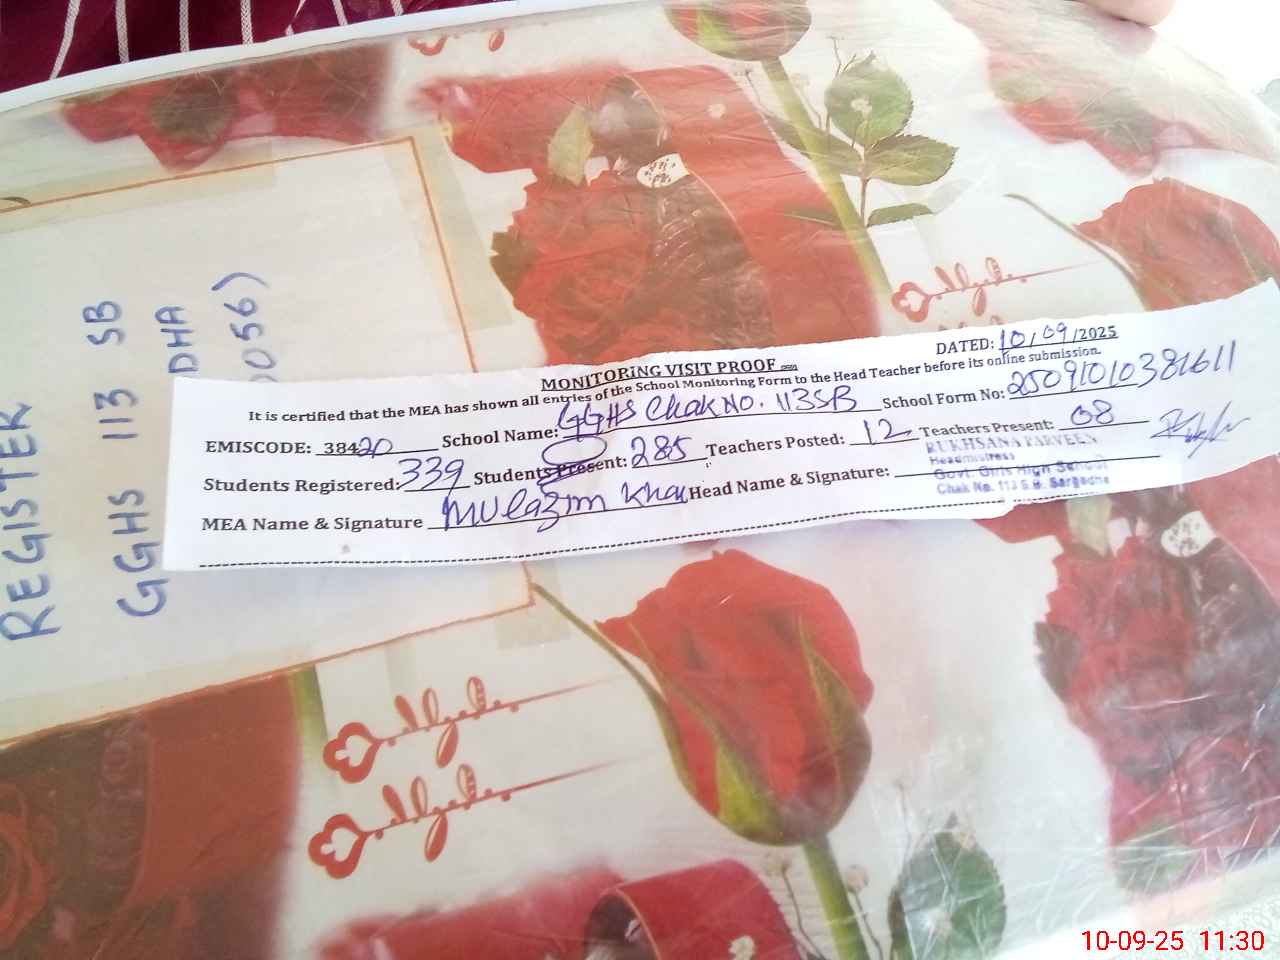 REGISTER
GGHS 113 SB
DHA
0056)
MONITORING VISIT PROOF
DATED: 10/09/2025
It is certified that the MEA has shown all entries of the School Monitoring Form to the Head Teacher before its online submission.
EMISCODE: 38420 School Name: GGHS Chak No. 113SB School Form No:
Students Registered: 339 Students Present: 285 Teachers Posted: 12 Teachers Present: 08
MEA Name & Signature Mulazim Khan Head Name & Signature:
RUKHSANA PARVEEN
Headmistress
Govt. Girls High School
Chak No. 113 S.B. Sargodha
10-09-25 11:30